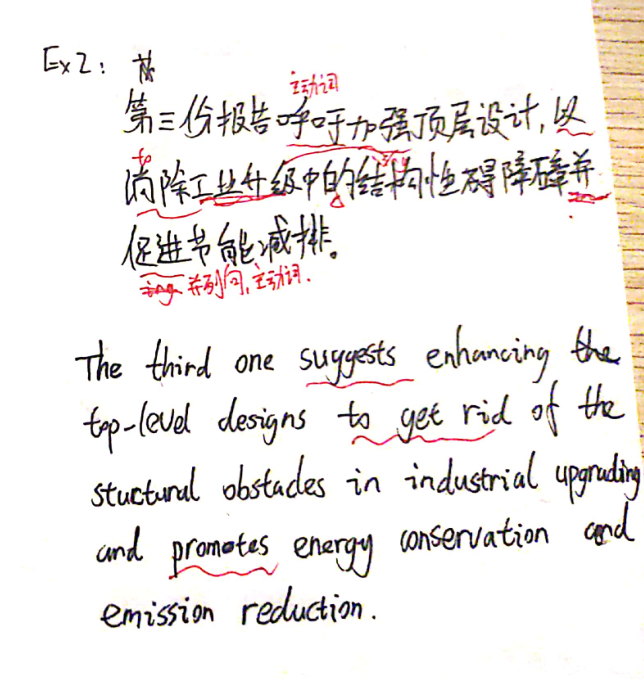 Ex2:
主动词
第三份报告呼吁加强顶层设计,以
to
消除工业升级中的结构性碍障碍并
促进节能减排。
ing 并列句,主动词.
The third one suggests enhancing the
top-level designs to get rid of the
stuctural obstacles in industrial upgrading
and promotes energy conservation and
emission reduction.